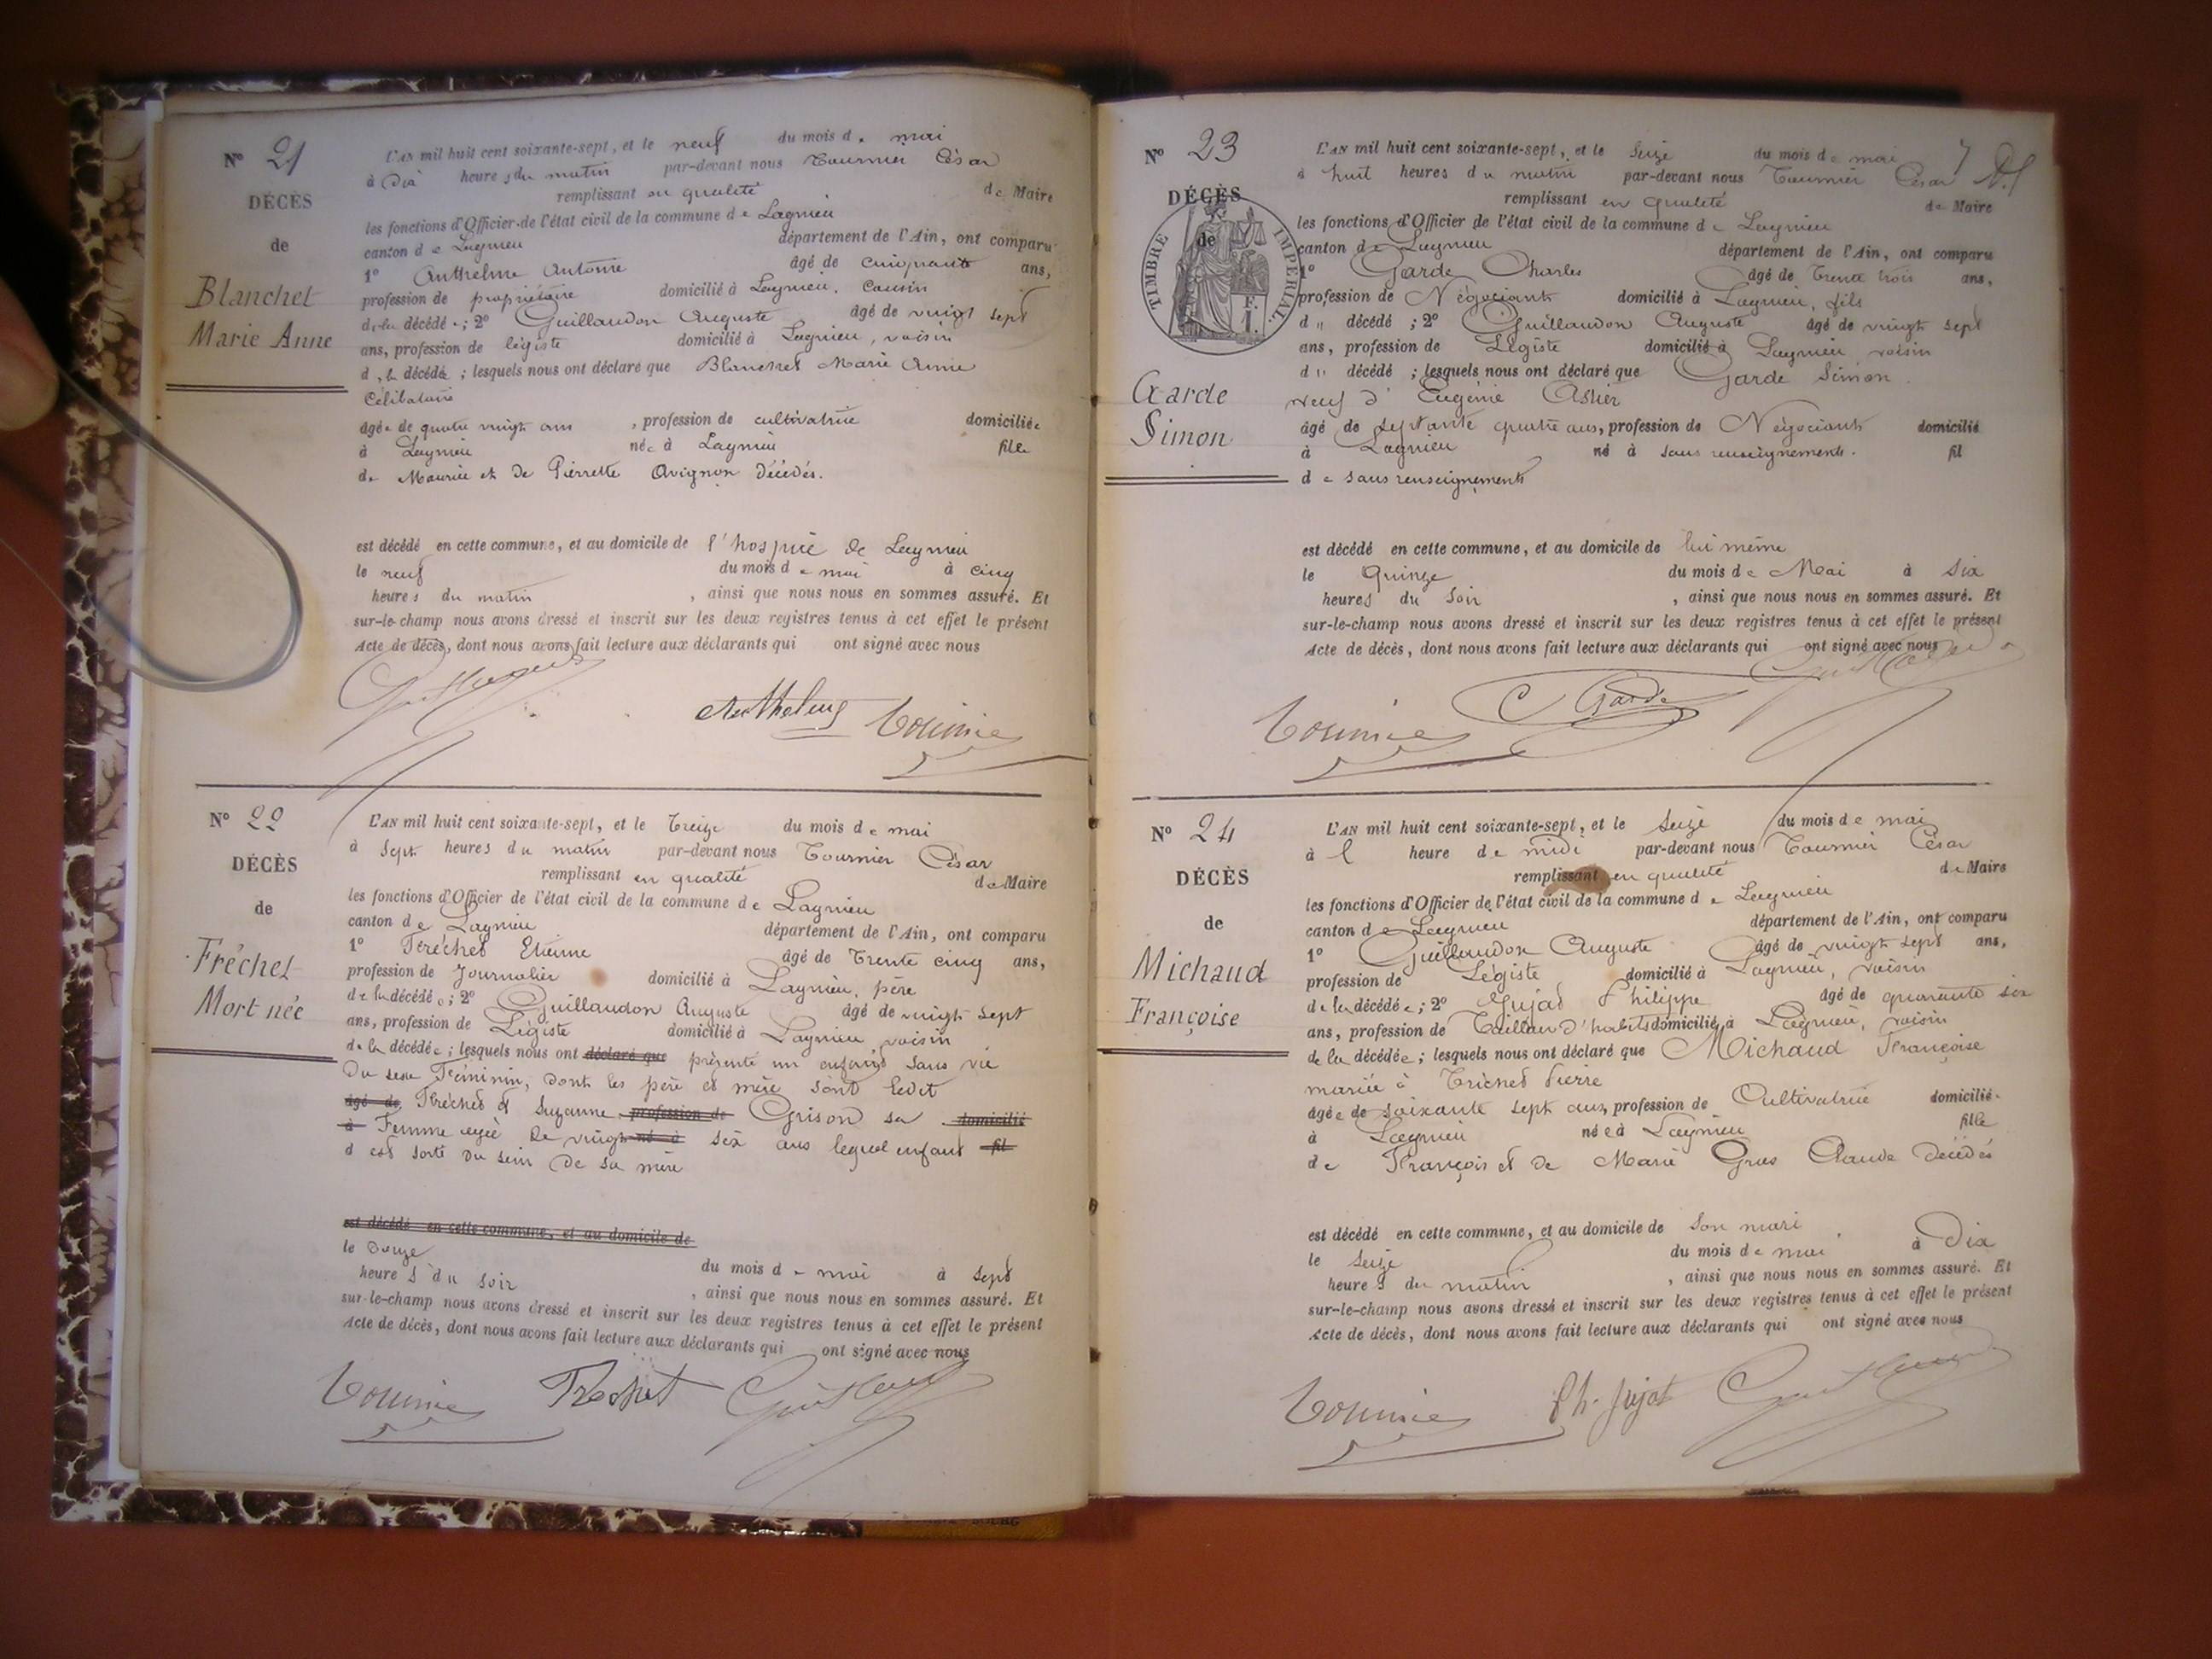 N° 21
DÉCÈS
de
Blanchet
Marie Anne
L'AN mil huit cent soixante-sept, et le neuf du mois de mai
à Dix heures du matin par-devant nous Tournier César
remplissant en qualité de Maire
les fonctions d'Officier de l'état civil de la commune de Lagnieu
canton de Lagnieu département de l'Ain, ont comparu
1° Anthelme Antoine âgé de cinquante ans,
profession de propriétaire domicilié à Lagnieu, cousin
de la décédée; 2° Guillaudon Auguste âgé de vingt sept
ans, profession de légiste domicilié à Lagnieu, voisin
d la décédée; lesquels nous ont déclaré que Blanchet Marie Anne
Célibataire
âgée de quatre vingt ans, profession de cultivatrice domiciliée
à Lagnieu née à Lagnieu fille
de Maurice et de Pierrette Avignon décédés.
est décédé en cette commune, et au domicile de l'hospice de Lagnieu
le neuf du mois de mai à cinq
heures du matin, ainsi que nous nous en sommes assuré. Et
sur-le-champ nous avons dressé et inscrit sur les deux registres tenus à cet effet le présent
Acte de décès, dont nous avons fait lecture aux déclarants qui ont signé avec nous
Anthelme Tournier
N° 22
DÉCÈS
de
Fréchet
Mort née
L'AN mil huit cent soixante-sept, et le Treize du mois de mai
à sept heures du matin par-devant nous Tournier César
remplissant en qualité de Maire
les fonctions d'Officier de l'état civil de la commune de Lagnieu
canton de Lagnieu département de l'Ain, ont comparu
1° Fréchet Etienne âgé de Trente cinq ans,
profession de Journalier domicilié à Lagnieu, père
de la décédée; 2° Guillaudon Auguste âgé de vingt sept
ans, profession de Légiste domicilié à Lagnieu voisin
de la décédée; lesquels nous ont déclaré que présenté un enfant sans vie
Du sexe Féminin, dont les père et mère sont ledit
âgé de Fréchet et Suzanne profession de Grison sa domicilié
à Femme agée de vingt né à six ans lequel enfant fil
d est sorti du sein de sa mère
est décédé en cette commune, et au domicile de
le douze du mois de mai à sept
heures du soir, ainsi que nous nous en sommes assuré. Et
sur-le-champ nous avons dressé et inscrit sur les deux registres tenus à cet effet le présent
Acte de décès, dont nous avons fait lecture aux déclarants qui ont signé avec nous
Tournier Frechet
N° 23
DÉCÈS
de
TIMBRE IMPÉRIAL
Garde
Simon
7
L'AN mil huit cent soixante-sept, et le Seize du mois de mai
à huit heures du matin par-devant nous Tournier César
remplissant en qualité de Maire
les fonctions d'Officier de l'état civil de la commune de Lagnieu
canton de Lagnieu département de l'Ain, ont comparu
1° Garde Charles âgé de Trente trois ans,
profession de Négociant domicilié à Lagnieu, fils
du décédé; 2° Guillaudon Auguste âgé de vingt sept
ans, profession de Légiste domicilié à Lagnieu voisin
du décédé; lesquels nous ont déclaré que Garde Simon
veuf d'Eugénie Astier
âgé de septante quatre ans, profession de Négociant domicilié
à Lagnieu né à sans renseignements. fil
de sans renseignements
est décédé en cette commune, et au domicile de lui même
le Quinze du mois de Mai à six
heures du soir, ainsi que nous nous en sommes assuré. Et
sur-le-champ nous avons dressé et inscrit sur les deux registres tenus à cet effet le présent
Acte de décès, dont nous avons fait lecture aux déclarants qui ont signé avec nous
Tournier C Garde
N° 24
DÉCÈS
de
Michaud
Françoise
L'AN mil huit cent soixante-sept, et le Seize du mois de mai
à l heure de midi par-devant nous Tournier César
remplissant en qualité de Maire
les fonctions d'Officier de l'état civil de la commune de Lagnieu
canton de Lagnieu département de l'Ain, ont comparu
1° Guillaudon Auguste âgé de vingt sept ans,
profession de Légiste domicilié à Lagnieu, voisin
de la décédée; 2° Jujat Philippe âgé de quarante six
ans, profession de Tailleur d'habits domicilié à Lagnieu, voisin
de la décédée; lesquels nous ont déclaré que Michaud Françoise
mariée à Trichet Pierre
âgée de soixante sept ans, profession de Cultivatrice domiciliée
à Lagnieu née à Lagnieu fille
de François et de Marie Gros Claude décédés
est décédé en cette commune, et au domicile de son mari
le seize du mois de mai à Dix
heures du matin, ainsi que nous nous en sommes assuré. Et
sur-le-champ nous avons dressé et inscrit sur les deux registres tenus à cet effet le présent
Acte de décès, dont nous avons fait lecture aux déclarants qui ont signé avec nous
Tournier Ph. Jujat